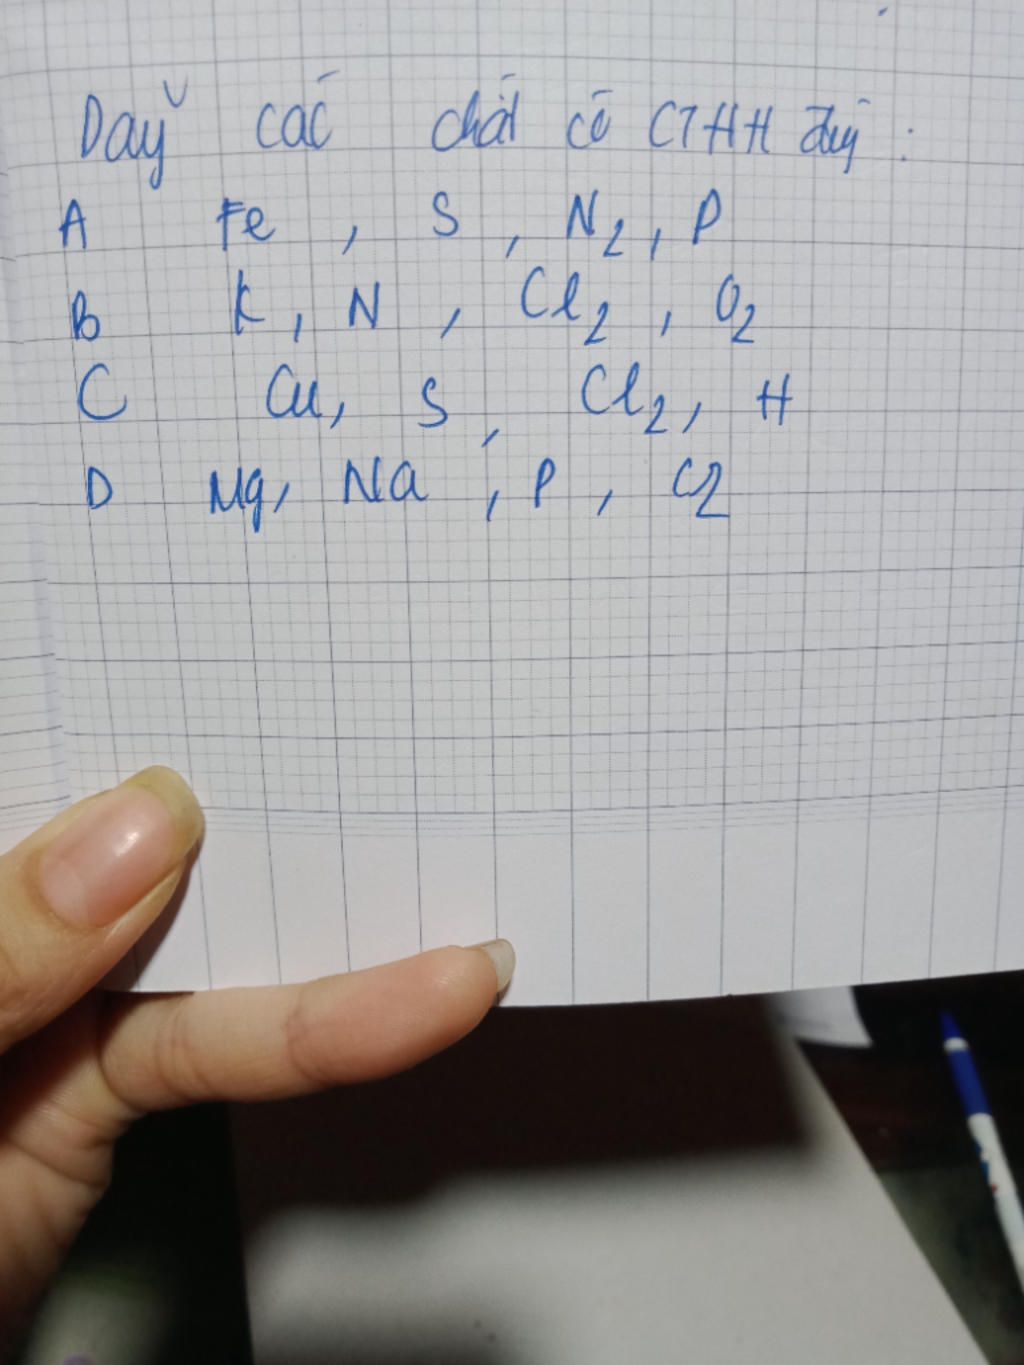 Dãy các chất có CTHH đúng :
A Fe , S , N₂ , P
B K , N , Cl₂ , O₂
C Cu, S , Cl₂, H
D Mg, Na , P , C2